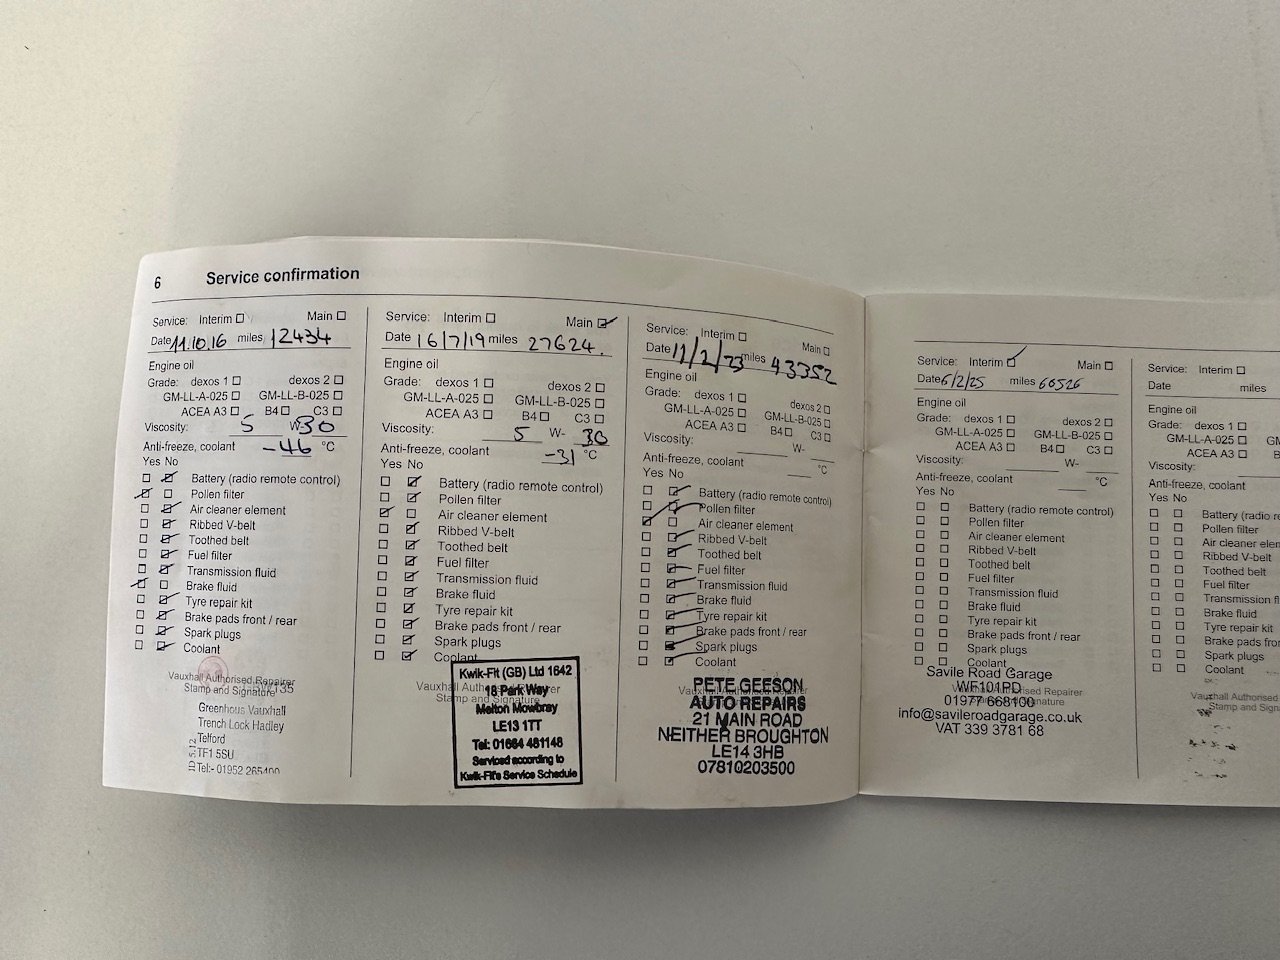 6 Service confirmation
Service: Interim Main
Date 11.10.16 miles 12434
Engine oil
Grade: dexos 1 dexos 2
GM-LL-A-025 GM-LL-B-025
ACEA A3 B4 C3
Viscosity: 5 W-30
Anti-freeze, coolant -46 °C
Yes No
Battery (radio remote control)
Pollen filter
Air cleaner element
Ribbed V-belt
Toothed belt
Fuel filter
Transmission fluid
Brake fluid
Tyre repair kit
Brake pads front / rear
Spark plugs
Coolant
Vauxhall Authorised Repairer
Stamp and Signature
Greenhous Vauxhall
Trench Lock Hadley
Telford
TF1 5SU
Tel:- 01952 265400
Service: Interim Main
Date 16/7/19 miles 27624.
Engine oil
Grade: dexos 1 dexos 2
GM-LL-A-025 GM-LL-B-025
ACEA A3 B4 C3
Viscosity: 5 W- 30
Anti-freeze, coolant -31 °C
Yes No
Battery (radio remote control)
Pollen filter
Air cleaner element
Ribbed V-belt
Toothed belt
Fuel filter
Transmission fluid
Brake fluid
Tyre repair kit
Brake pads front / rear
Spark plugs
Coolant
Vauxhall Authorised Repairer
Stamp and Signature
Kwik-Fit (GB) Ltd 1642
18 Park Way
Melton Mowbray
LE13 1TT
Tel: 01664 481148
Serviced according to
Kwik-Fit's Service Schedule
Service: Interim Main
Date 11/2/23 miles 43352
Engine oil
Grade: dexos 1 dexos 2
GM-LL-A-025 GM-LL-B-025
ACEA A3 B4 C3
Viscosity: W-
Anti-freeze, coolant °C
Yes No
Battery (radio remote control)
Pollen filter
Air cleaner element
Ribbed V-belt
Toothed belt
Fuel filter
Transmission fluid
Brake fluid
Tyre repair kit
Brake pads front / rear
Spark plugs
Coolant
Vauxhall Authorised Repairer
PETE GEESON
AUTO REPAIRS
21 MAIN ROAD
NEITHER BROUGHTON
LE14 3HB
07810203500
Service: Interim Main
Date 6/2/25 miles 60526
Engine oil
Grade: dexos 1 dexos 2
GM-LL-A-025 GM-LL-B-025
ACEA A3 B4 C3
Viscosity: W-
Anti-freeze, coolant °C
Yes No
Battery (radio remote control)
Pollen filter
Air cleaner element
Ribbed V-belt
Toothed belt
Fuel filter
Transmission fluid
Brake fluid
Tyre repair kit
Brake pads front / rear
Spark plugs
Coolant
Savile Road Garage
WF101PD
01977 668100
info@savileroadgarage.co.uk
VAT 339 3781 68
Service: Interim
Date miles
Engine oil
Grade: dexos 1
GM-LL-A-025 G
ACEA A3 B
Viscosity:
Anti-freeze, coolant
Yes No
Battery (radio re
Pollen filter
Air cleaner elem
Ribbed V-belt
Toothed belt
Fuel filter
Transmission f
Brake fluid
Tyre repair kit
Brake pads fro
Spark plugs
Coolant
Vauxhall Authorised
Stamp and Sign